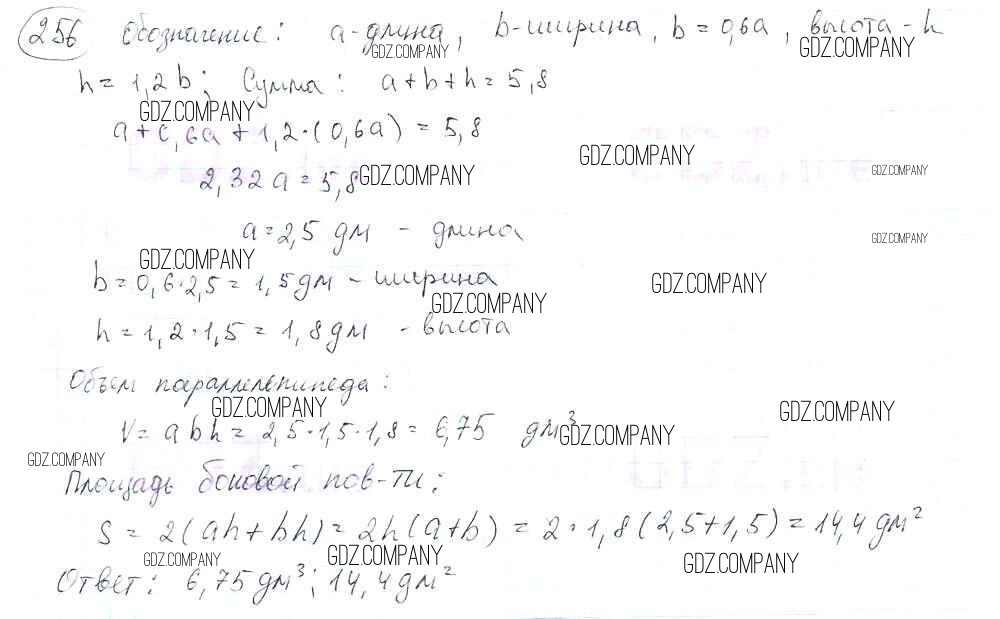 256 Обозначение: a-длина, b-ширина, b=0,6a, высота-h
GDZ.COMPANY GDZ.COMPANY
h=1,2b; Сумма: a+b+h=5,8
GDZ.COMPANY
a+0,6a+1,2·(0,6a)=5,8
GDZ.COMPANY
2,32a=5,8 GDZ.COMPANY GDZ.COMPANY
a=2,5 дм - длина GDZ.COMPANY
GDZ.COMPANY
b=0,6·2,5=1,5дм - ширина GDZ.COMPANY
GDZ.COMPANY
h=1,2·1,5=1,8дм - высота
Объем параллелепипеда:
GDZ.COMPANY GDZ.COMPANY
V=abh=2,5·1,5·1,8=6,75 дм³
GDZ.COMPANY
GDZ.COMPANY
Площадь боковой пов-ти:
S=2(ah+bh)=2h(a+b)=2·1,8(2,5+1,5)=14,4дм²
GDZ.COMPANY GDZ.COMPANY GDZ.COMPANY
Ответ: 6,75дм³; 14,4дм²